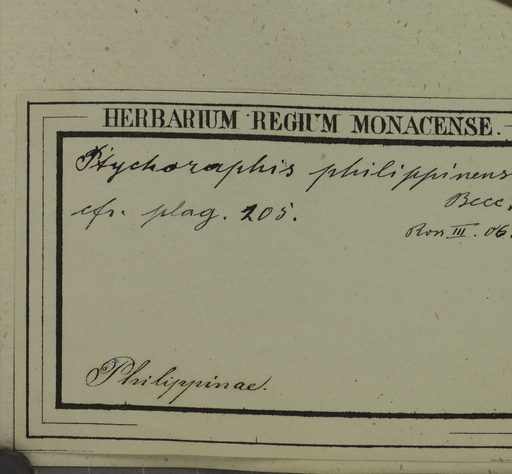 HERBARIUM REGIUM MONACENSE.
Ptychoraphis philippinens
Becc.
cfr. plag. 205.
Ross III. 06.
Philippinae.